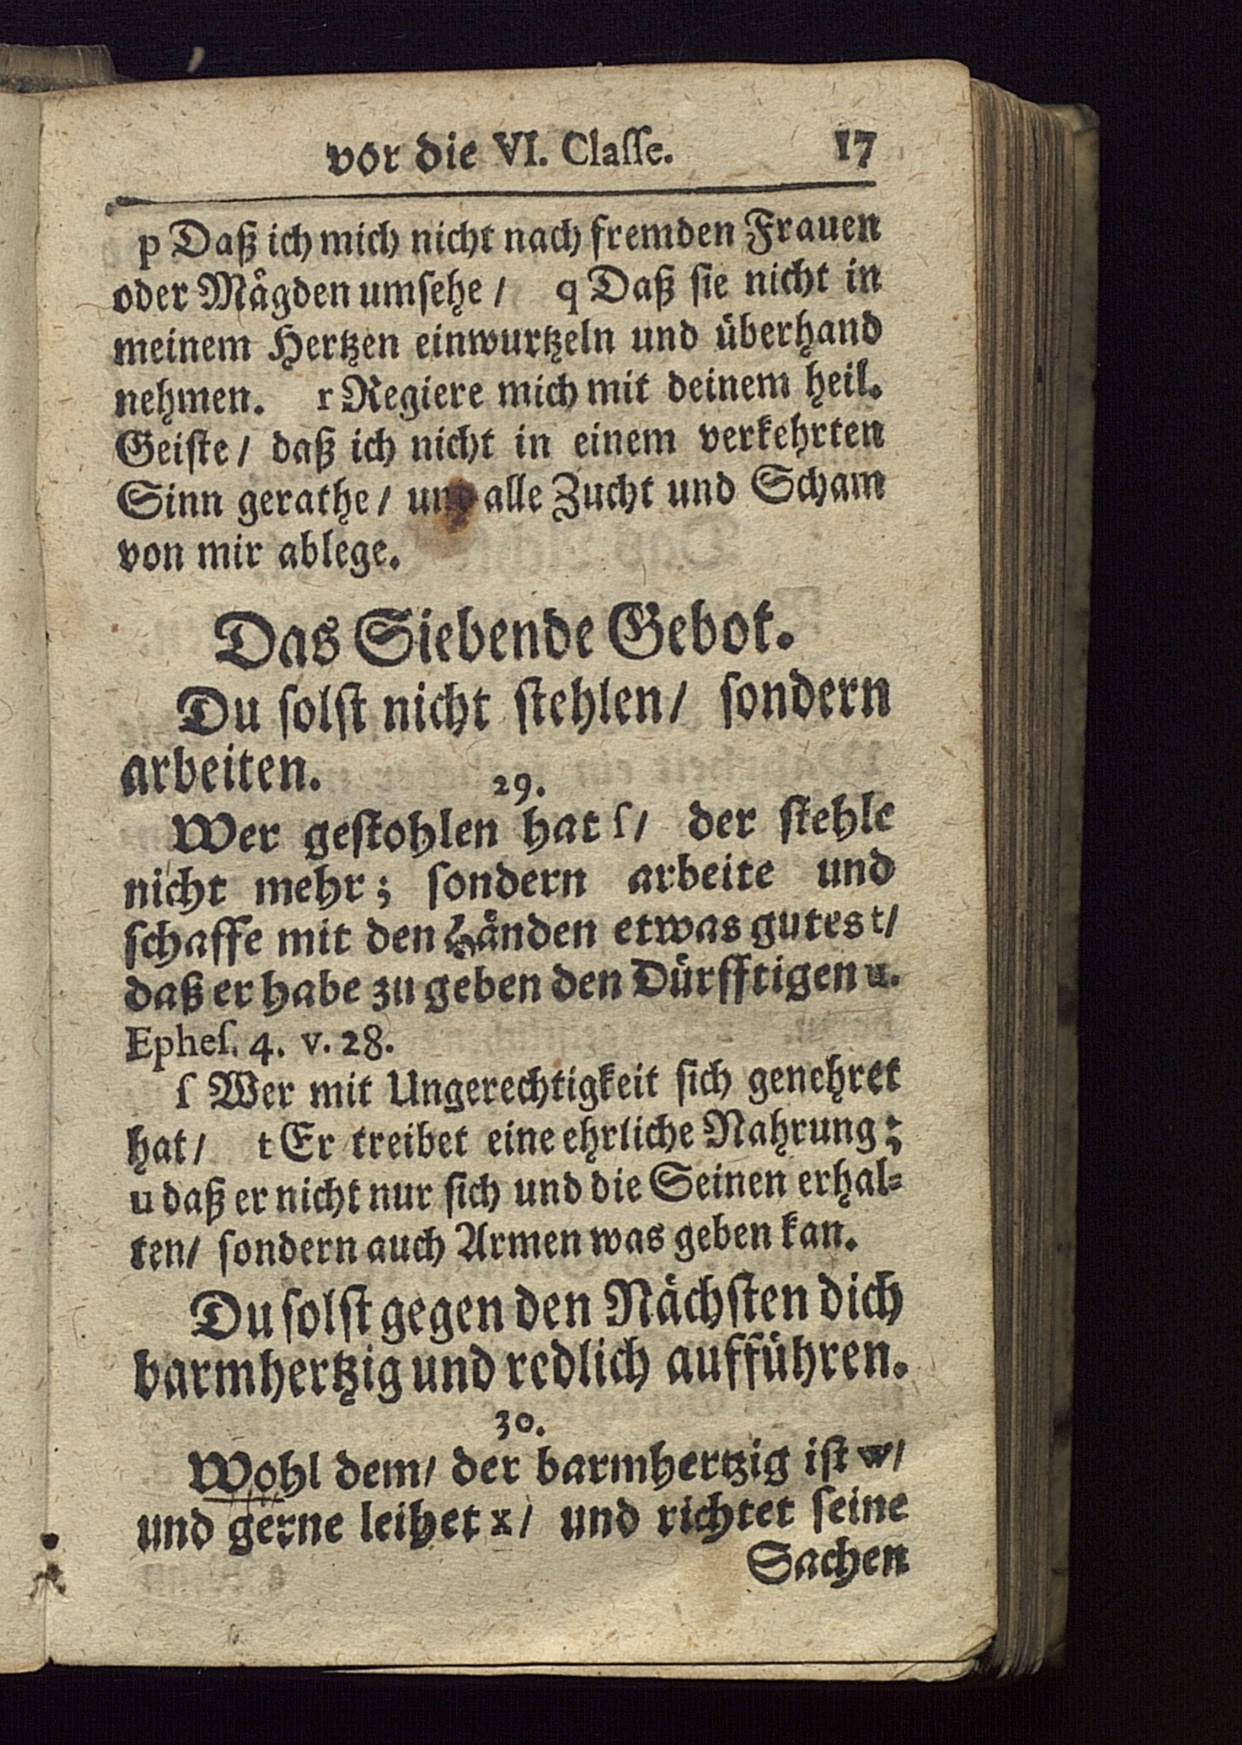 vor die VI. Claſſe. 17
p Daß ich mich nicht nach fremden Frauen
oder Mågden umſehe / q Daß ſie nicht in
meinem Hertzen einwurtzeln und überhand
nehmen. r Regiere mich mit deinem heil.
Geiſte / daß ich nicht in einem verkehrten
Sinn gerathe / und alle Zucht und Scham
von mir ablege.
Das Siebende Gebot.
Du ſolſt nicht ſtehlen / ſondern
arbeiten.
29.
Wer geſtohlen hat ſ / der ſtehle
nicht mehr; ſondern arbeite und
ſchaffe mit den Händen etwas gutes t /
daß er habe zu geben den Dürfftigen u.
Epheſ. 4. v. 28.
ſ Wer mit Ungerechtigkeit ſich genehret
hat / t Er treibet eine ehrliche Nahrung;
u daß er nicht nur ſich und die Seinen erhal⸗
ten / ſondern auch Armen was geben kan.
Du ſolſt gegen den Nächſten dich
barmhertzig und redlich aufführen.
30.
Wohl dem / der barmhertzig iſt w /
und gerne leihet x / und richtet ſeine
Sachen